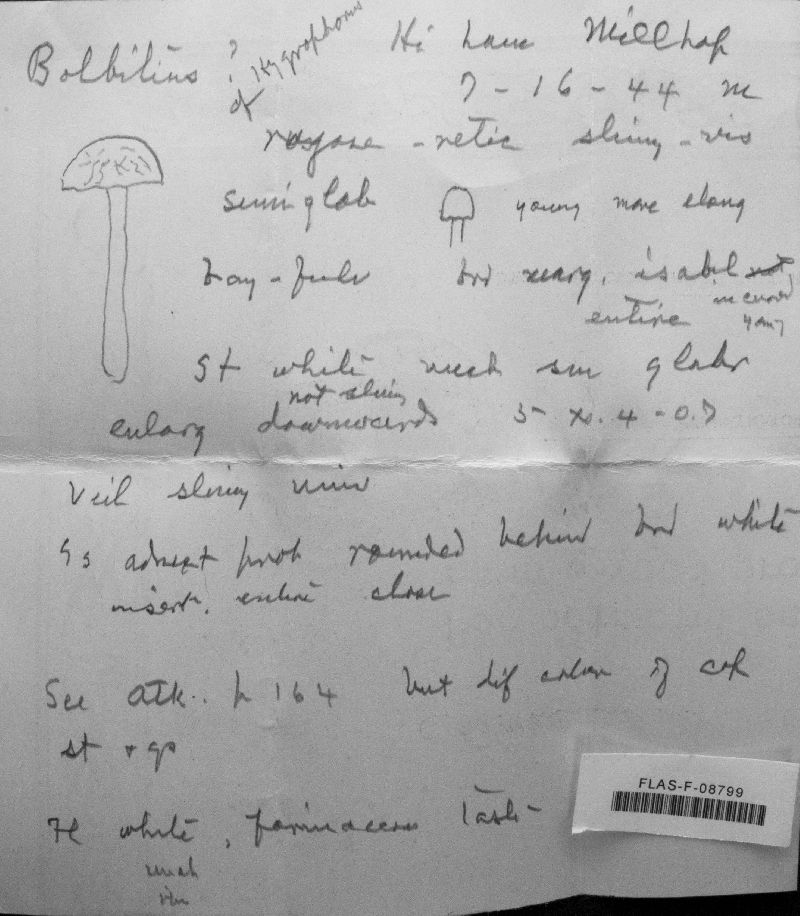 Bolbitius ? Hi ham Millhop
of Hygrophorus
7-16-44 m
rugose - retic slimy - vis
semiglob young more elong
bay - fulv isabel not
entire incurved young
St white much sm glabr
not slimy
enlarg downwards 5 x .4-0.7
Veil slimy univ
Gs adnext prob rounded behind brd white
insert. entire close
See Atk. p 164 but dif color of cap
st + gs
Fl white, farinaceous taste
much
FLAS-F-08799